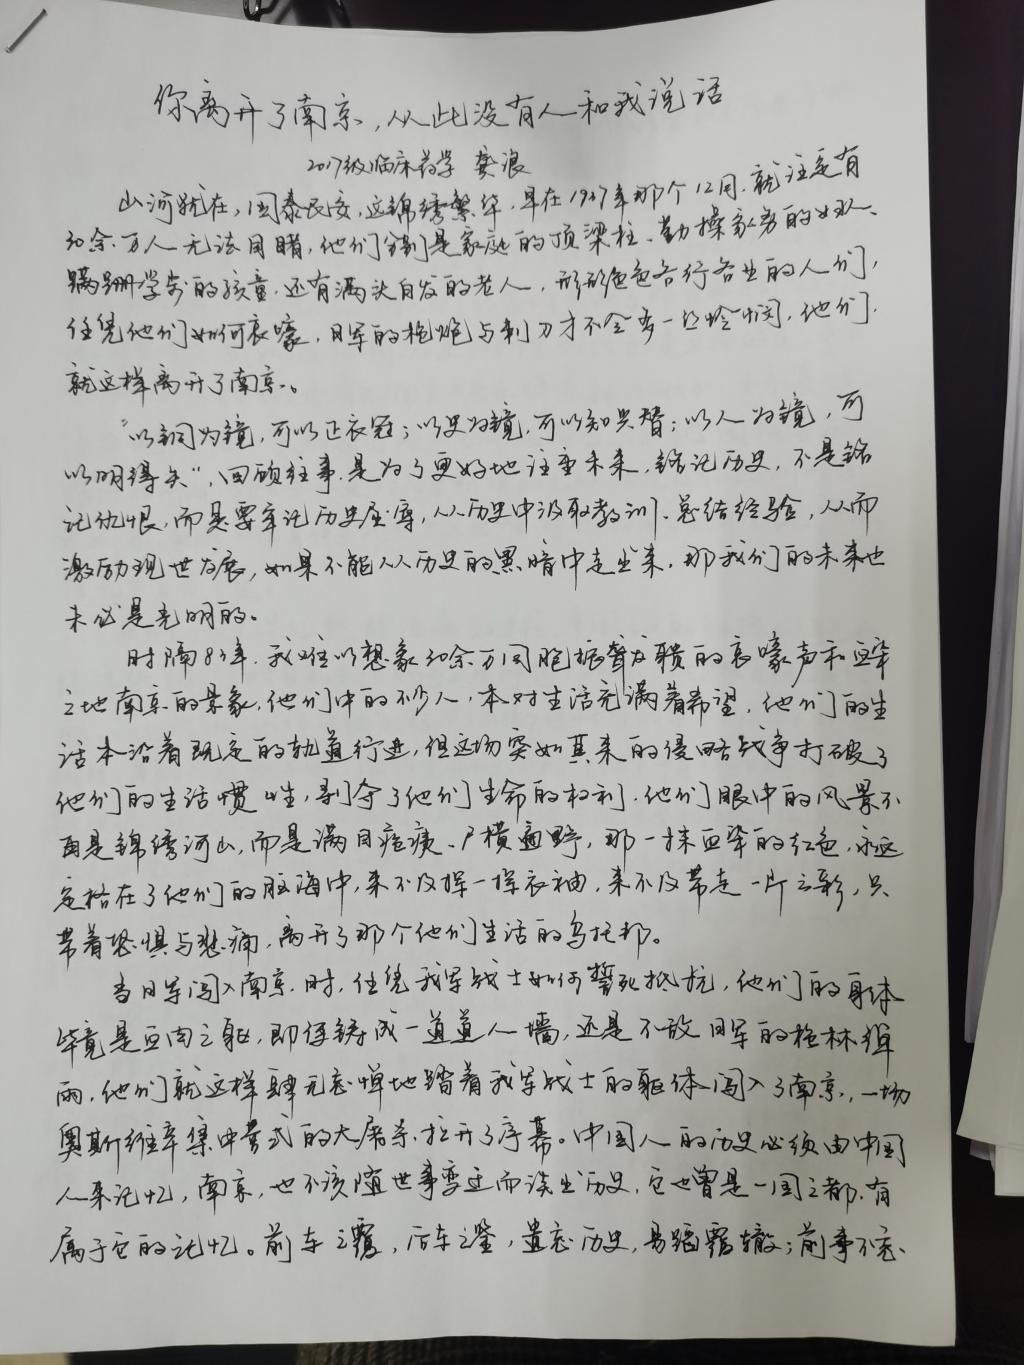 你离开了南京,从此没有人和我说话
2017级临床药学 龚浪
山河犹在,国泰民安,这锦绣繁华,早在1937年那个12月,就注定有
30余万人无法目睹,他们分别是家庭的顶梁柱、勤操家务的妇女、
蹒跚学步的孩童、还有满头白发的老人,形形色色各行各业的人们,
任凭他们如何哀嚎,日军的枪炮与刺刀才不会多一丝怜悯,他们,
就这样离开了南京。
“以铜为镜,可以正衣冠;以史为镜,可以知兴替;以人为镜,可
以明得失”,回顾往事,是为了更好地注重未来,铭记历史,不是铭
记仇恨,而是要牢记历史屈辱,从历史中汲取教训、总结经验,从而
激励现世发展,如果不能从历史的黑暗中走出来,那我们的未来也
未必是光明的。
时隔83年,我难以想象30余万同胞振聋发聩的哀嚎声和血染
之地南京的景象,他们中的不少人,本对生活充满着希望,他们的生
活本沿着既定的轨道行进,但这场突如其来的侵略战争打破了
他们的生活惯性,剥夺了他们生命的权利,他们眼中的风景不
再是锦绣河山,而是满目疮痍、尸横遍野,那一抹血染的红色,永远
定格在了他们的脑海中,来不及挥一挥衣袖,来不及带走一片云彩,只
带着恐惧与悲痛,离开了那个他们生活的乌托邦。
当日军闯入南京时,任凭我军战士如何誓死抵抗,他们的身体
毕竟是血肉之躯,即便铸成一道道人墙,还是不敌日军的枪林弹
雨,他们就这样肆无忌惮地踏着我军战士的躯体闯入了南京,一场
奥斯维辛集中营式的大屠杀,拉开了序幕。中国人的历史必须由中国
人来记忆,南京,也不该随世事变迁而淡出历史,它也曾是一国之都,有
属于它的记忆。前车之覆,后车之鉴,遗忘历史,易蹈覆辙;前事不忘,